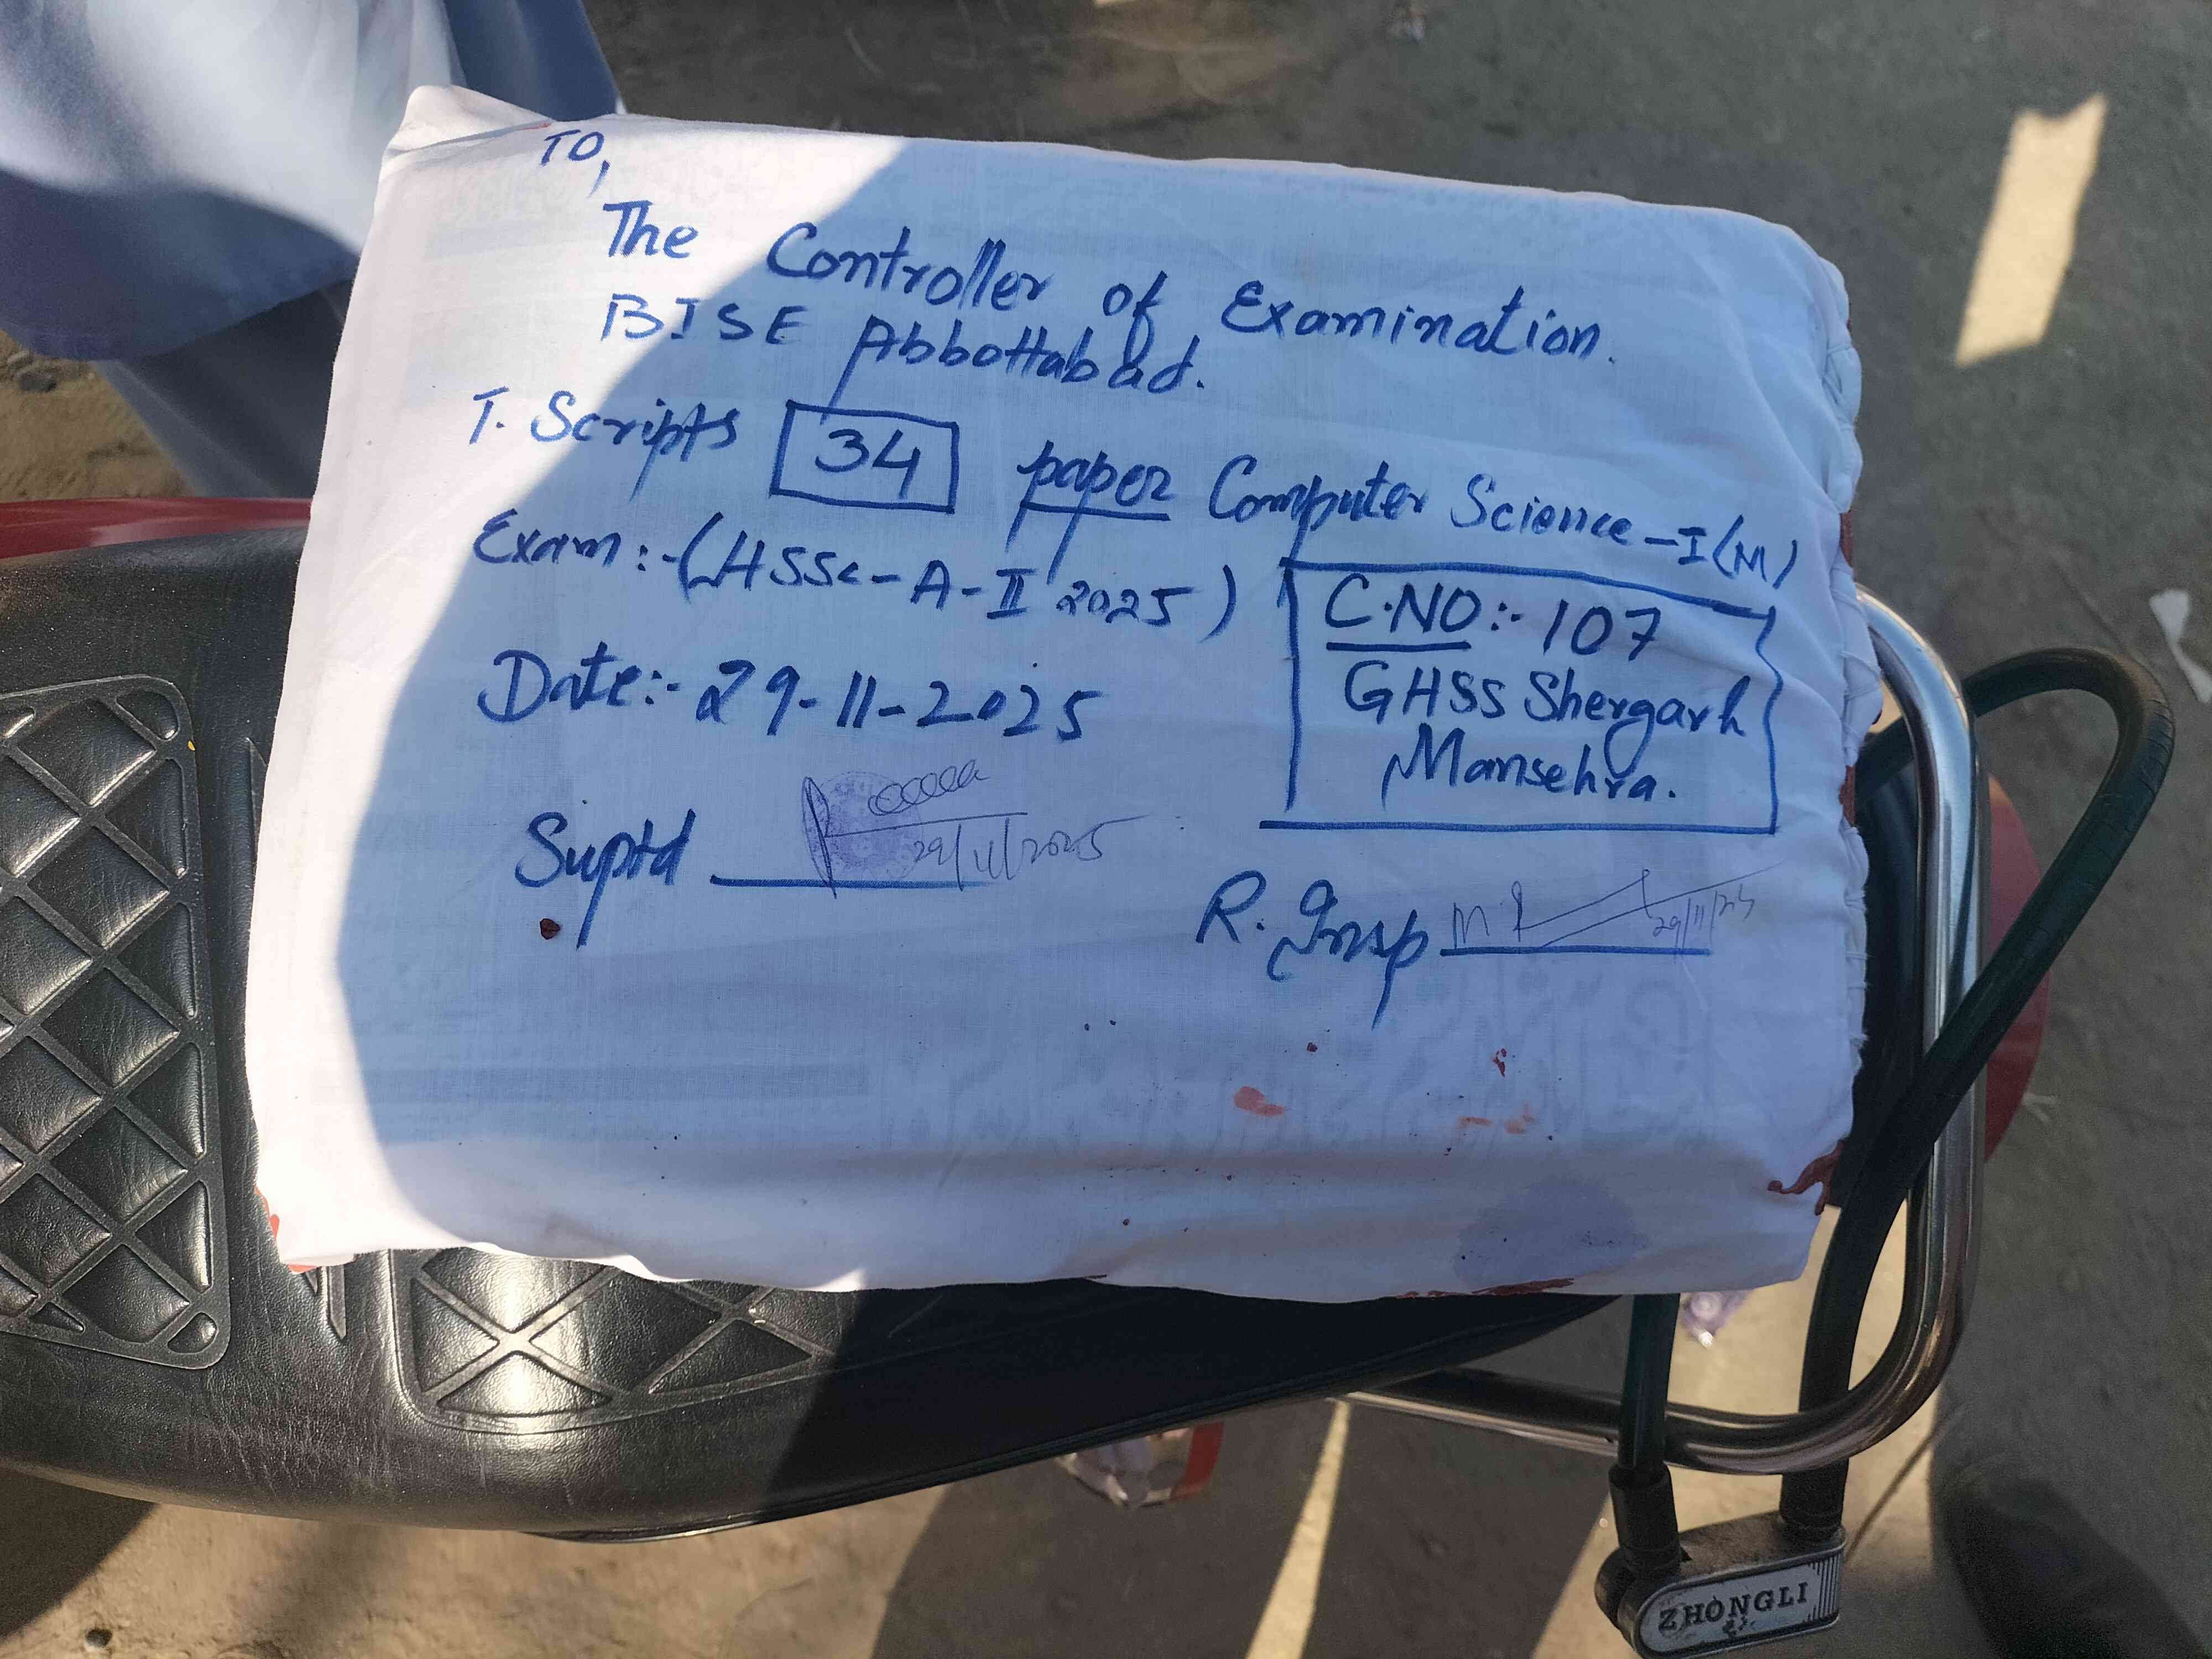 TO,
The Controller of Examination.
BISE Abbottabad.
T. Scripts 34 paper Computer Science-I(M)
Exam:-(HSSC-A-II 2025)
C.NO:-107
GHSS Shergarh
Mansehra.
Date:-29-11-2025
Suptd
29/11/2025
R. Insp
29/11/25
ZHONGLI